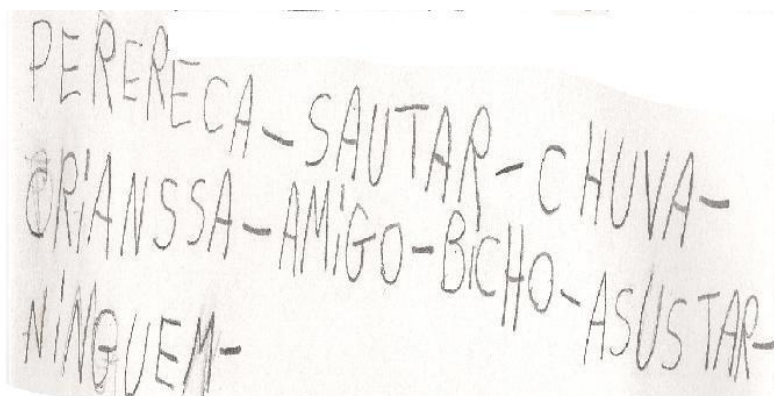 PERERECA-SAUTAR-CHUVA-
CRiANSSA-AMiGO-BiCHO-ASUSTAR-
NiNGUEM-